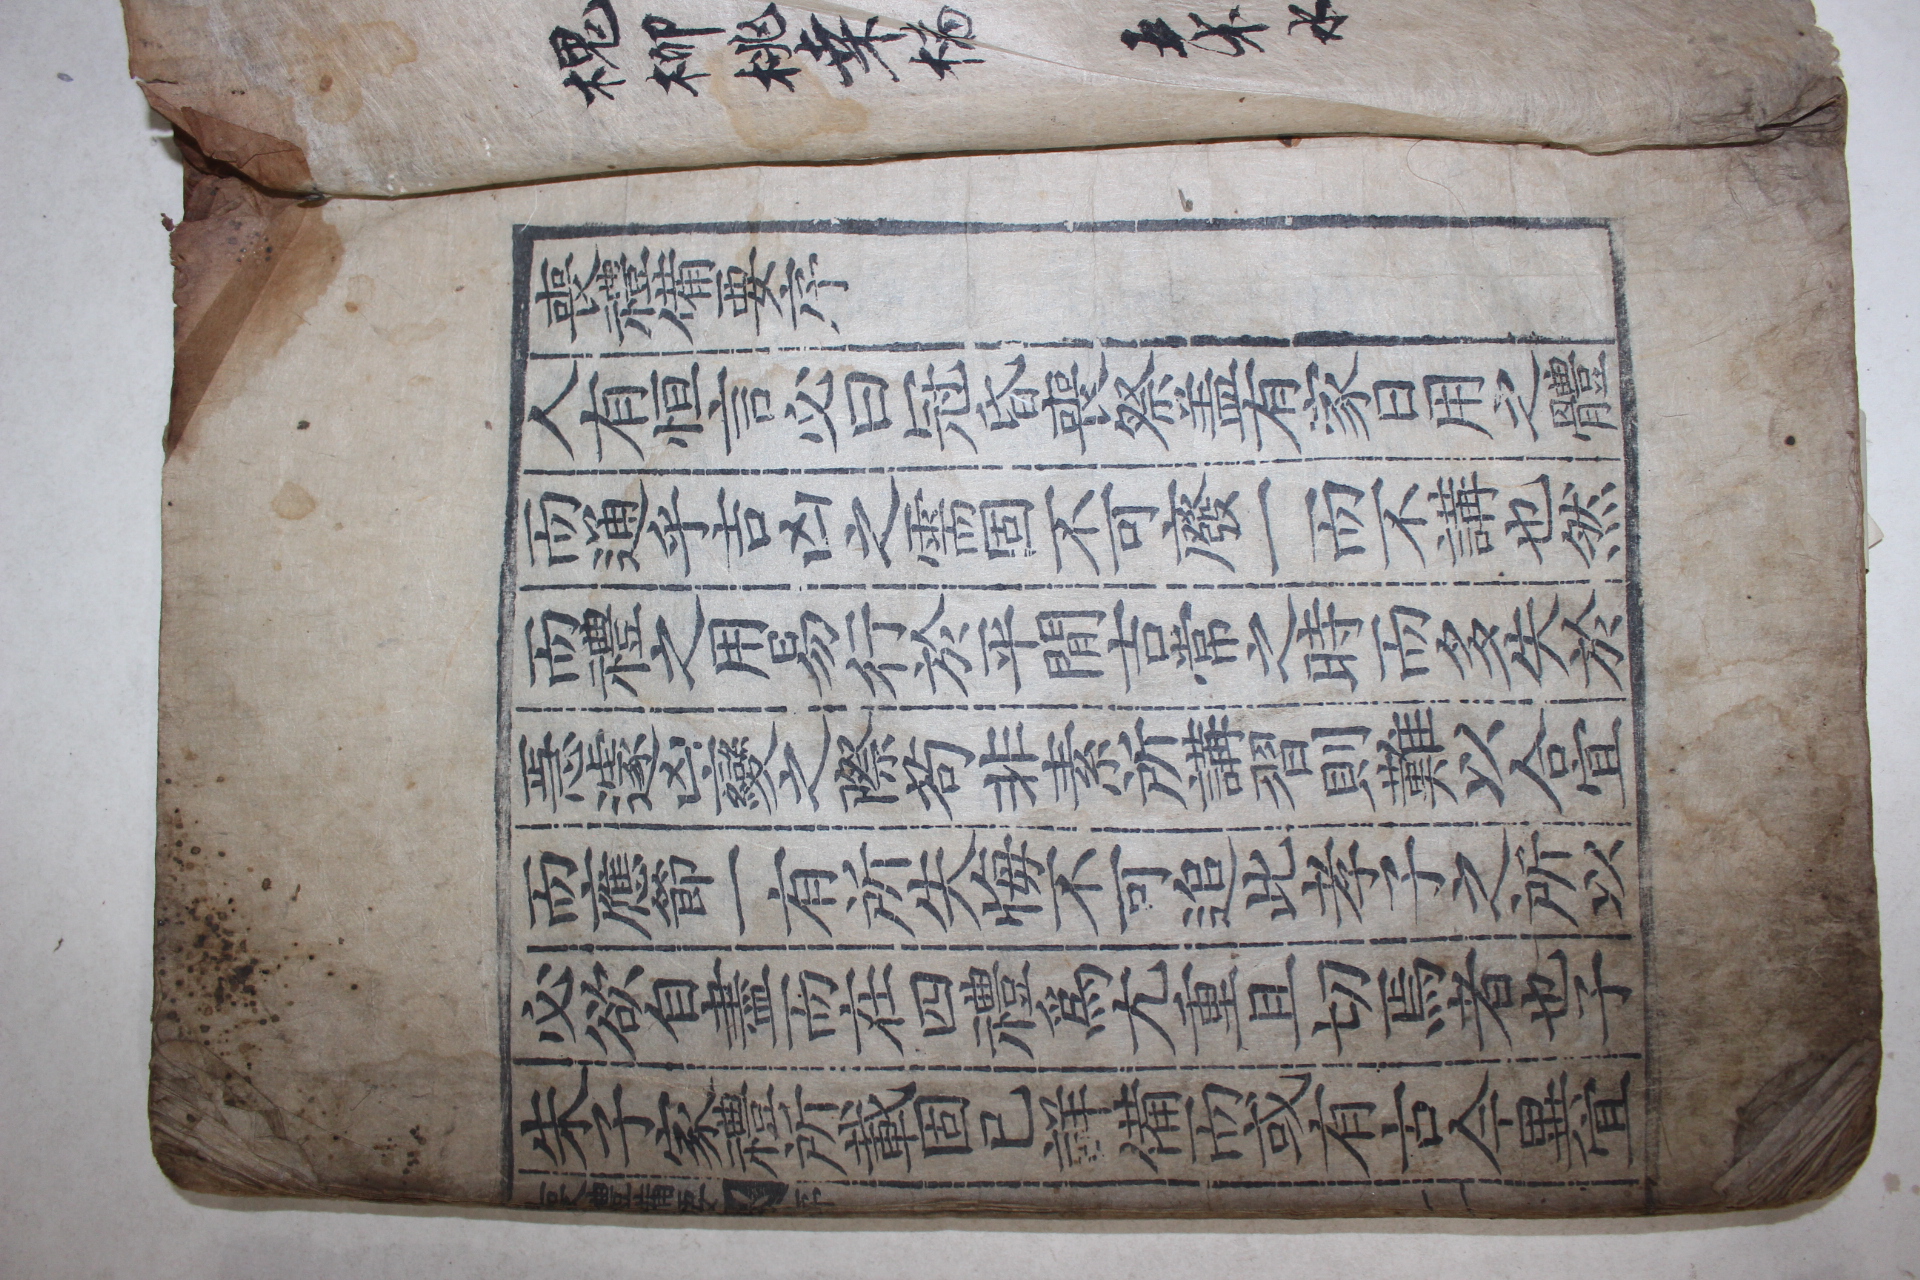 槐柳桃桑楮
五木水
喪禮備要序
人有恒言必曰冠昏喪祭盖有家日用之體
而通乎吉凶之需固不可廢一而不講也然
而禮之用易行於平閒吉常之時而多失於
急遽凶變之際苟非素所講習則難以合宜
而應節一有所失悔不可追此孝子之所以
必欲自盡而在四禮爲尢重且切焉者也子
朱子家禮所載固已詳備而或有古今異宜
喪禮備要 序 一